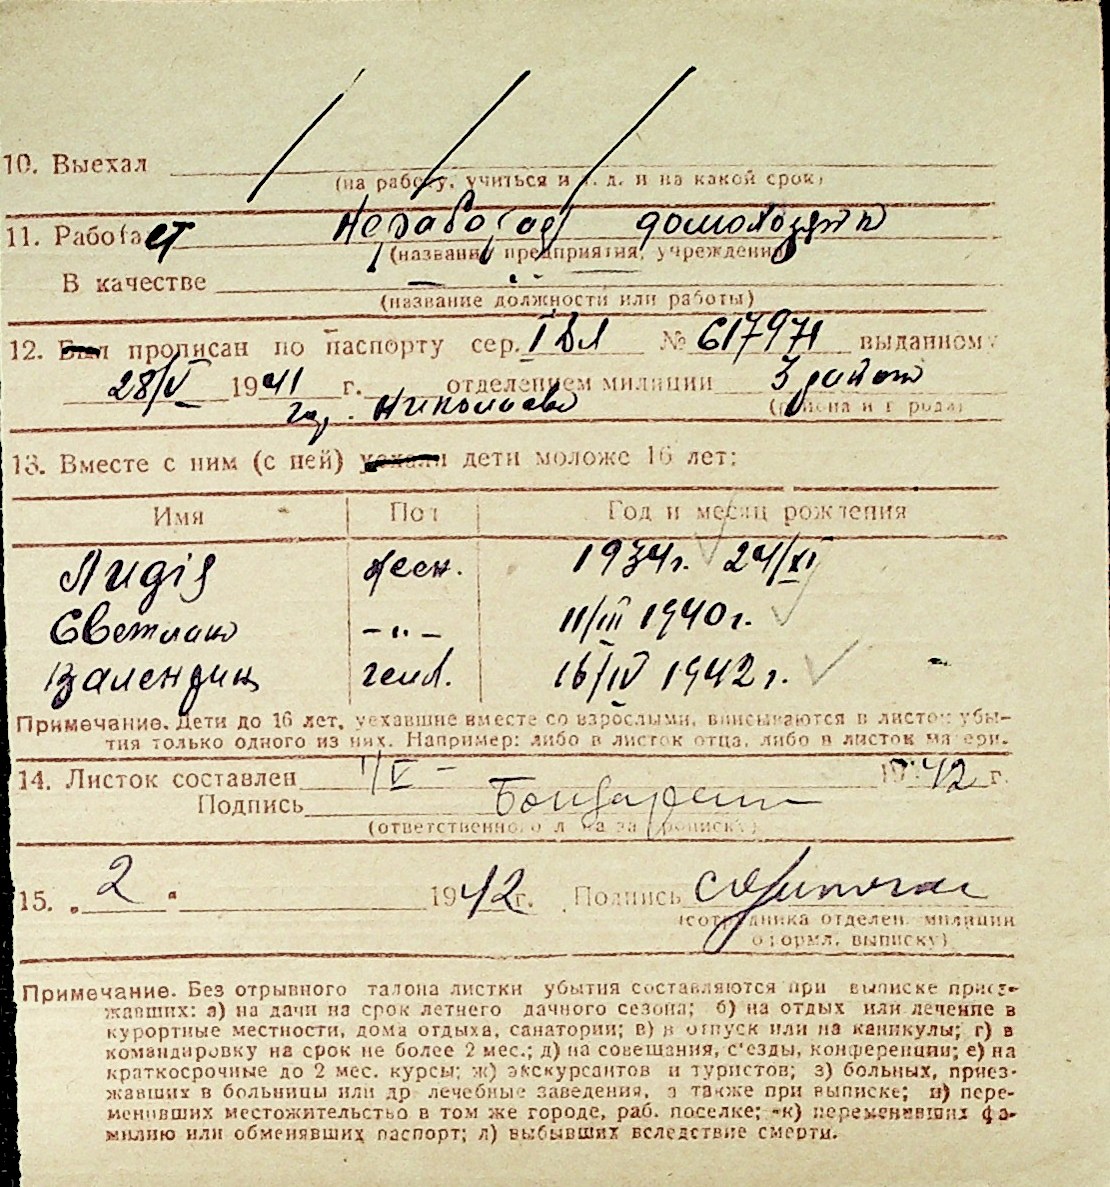 10. Выехал
(на работу, учиться и т. д. и на какой срок)
11. Работает не работает домохозяйка
(название предприятия, учреждения)
В качестве —
(название должности или работы)
12. Был прописан по паспорту сер. I ВЛ № 617971 выданному
28/V 1941 г. отделением милиции 3 район
гор. Николаева (района и города)
13. Вместе с ним (с ней) уехали дети моложе 16 лет:
Имя Пол Год и месяц рождения
Лидія жен. 1934г. 24/XI
Светлана -"- 11/III 1940г.
Валентин 16/IV 1942г.
Примечание. Дети до 16 лет, уехавшие вместе со взрослыми, вписываются в листок убы-
тия только одного из них. Например: либо в листок отца, либо в листок матери.
14. Листок составлен 1/V - 1942 г.
Подпись
(ответственного лица за прописку)
15. „2" 1942 г. Подпись
(сотрудника отделен. милиции
оформл. выписку)
Примечание. Без отрывного талона листки убытия составляются при выписке приез-
жавших: а) на дачи на срок летнего дачного сезона; б) на отдых или лечение в
курортные местности, дома отдыха, санатории; в) в отпуск или на каникулы; г) в
командировку на срок не более 2 мес.; д) на совещания, с'езды, конференции; е) на
краткосрочные до 2 мес. курсы; ж) экскурсантов и туристов; з) больных, приез-
жавших в больницы или др лечебные заведения, а также при выписке; и) пере-
менивших местожительство в том же городе, раб. поселке; к) переменивших фа-
милию или обменявших паспорт; л) выбывших вследствие смерти.